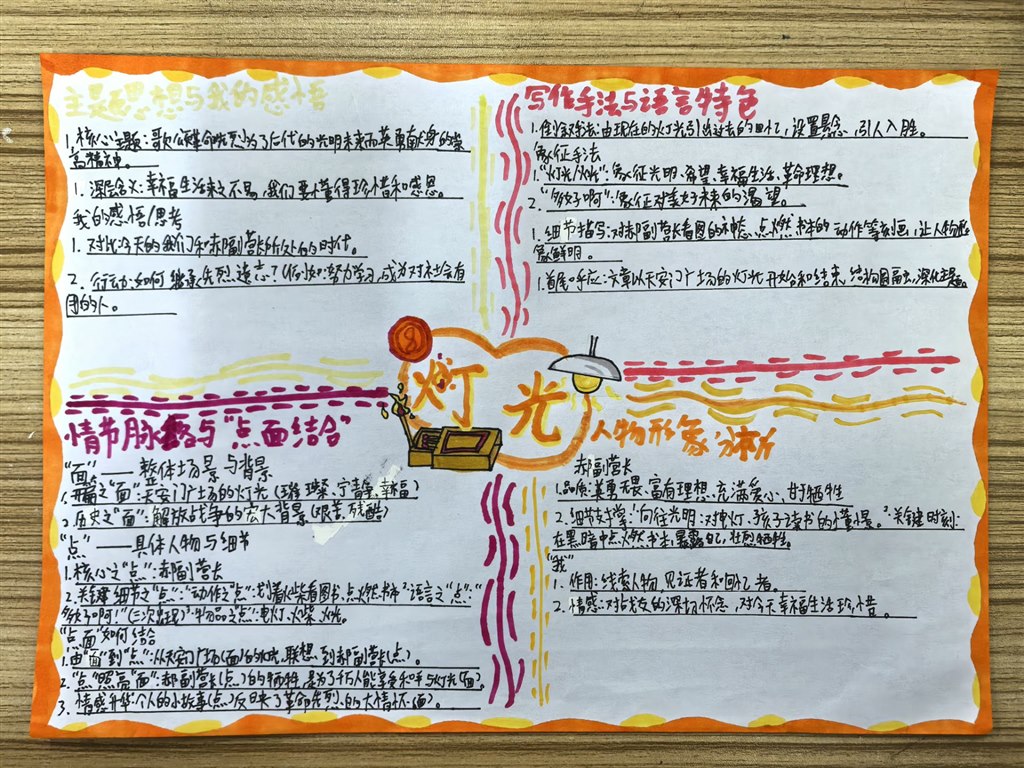 主题思想与我的感悟
1. 核心主题：歌颂革命先烈为了后代的光明未来而英勇献身的崇
高精神。
1. 深层含义：幸福生活来之不易，我们要懂得珍惜和感恩。
我的感悟/思考
1. 对比：今天的我们和郝副营长所处的时代。
2. 行动：如何继承先烈遗志？（例如：努力学习，成为对社会有
用的人。
写作手法与语言特色
1. 倒叙手法：由现在的灯光引出过去的回忆，设置悬念，引人入胜。
象征手法
1. "灯光/火光"：象征光明、希望、幸福生活、革命理想。
2. "多好啊"：象征对美好未来的渴望。
1. 细节描写：对郝副营长看图的神态、点燃书本的动作等刻画，让人物形
象鲜明。
1. 首尾呼应：文章以天安门广场的灯光开始和结束，结构圆,深化主题。
灯光
情节脉络与"点面结合"
"面"——整体场景与背景
1. 开篇之"面"：天安门广场的灯光（璀璨、宁静、幸福）
2. 历史之"面"：解放战争的宏大背景（艰苦、残酷）
"点"——具体人物与细节
1. 核心之"点"：郝副营长
2. 关键细节之"点"："动作之"点"：划着火柴看图书、点燃书本²语言之"点"："
多好啊！"（三次出现）³物品之"点"：电灯、火柴、火光。
"点面"如何结合
1. 由"面"到"点"：从天安门广场（面）的灯光，联想到郝副营长（点）。
2. "点"照亮"面"：郝副营长（点）的牺牲，是为了千万人能享受和平与灯光（面）。
3. 情感升华：个人的小故事（点）反映了革命先烈的大情怀（面）。
人物形象分析
郝副营长
1. 品质：英勇无畏、富有理想、充满爱心、甘于牺牲
2. 细节支撑：¹向往光明：对电灯、孩子读书的憧憬。²关键时刻：
在黑暗中点燃书本，暴露自己，壮烈牺牲。
"我"
1. 作用：线索人物，见证者和回忆者。
2. 情感：对战友的深切怀念，对今天幸福生活珍惜。